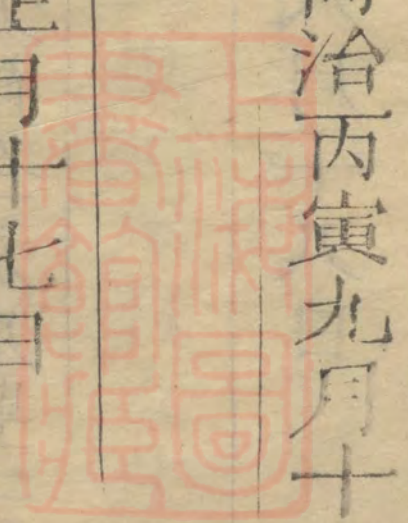 同治丙寅九月十
正月十七日
上海圖書館藏